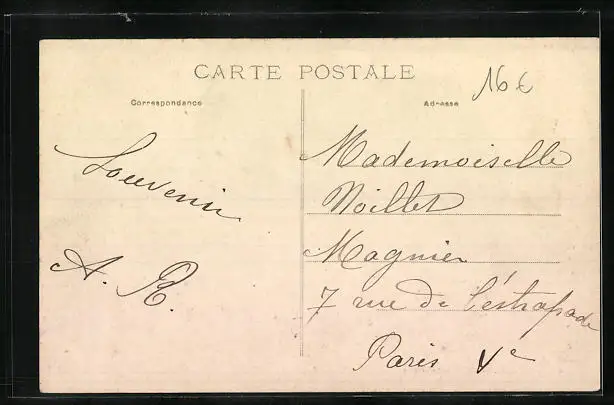 CARTE POSTALE
16 €
Correspondance
Adresse
Souvenir
A. R.
Mademoiselle
Noillet
Magnier
7 rue de l'éstrapade
Paris Ve